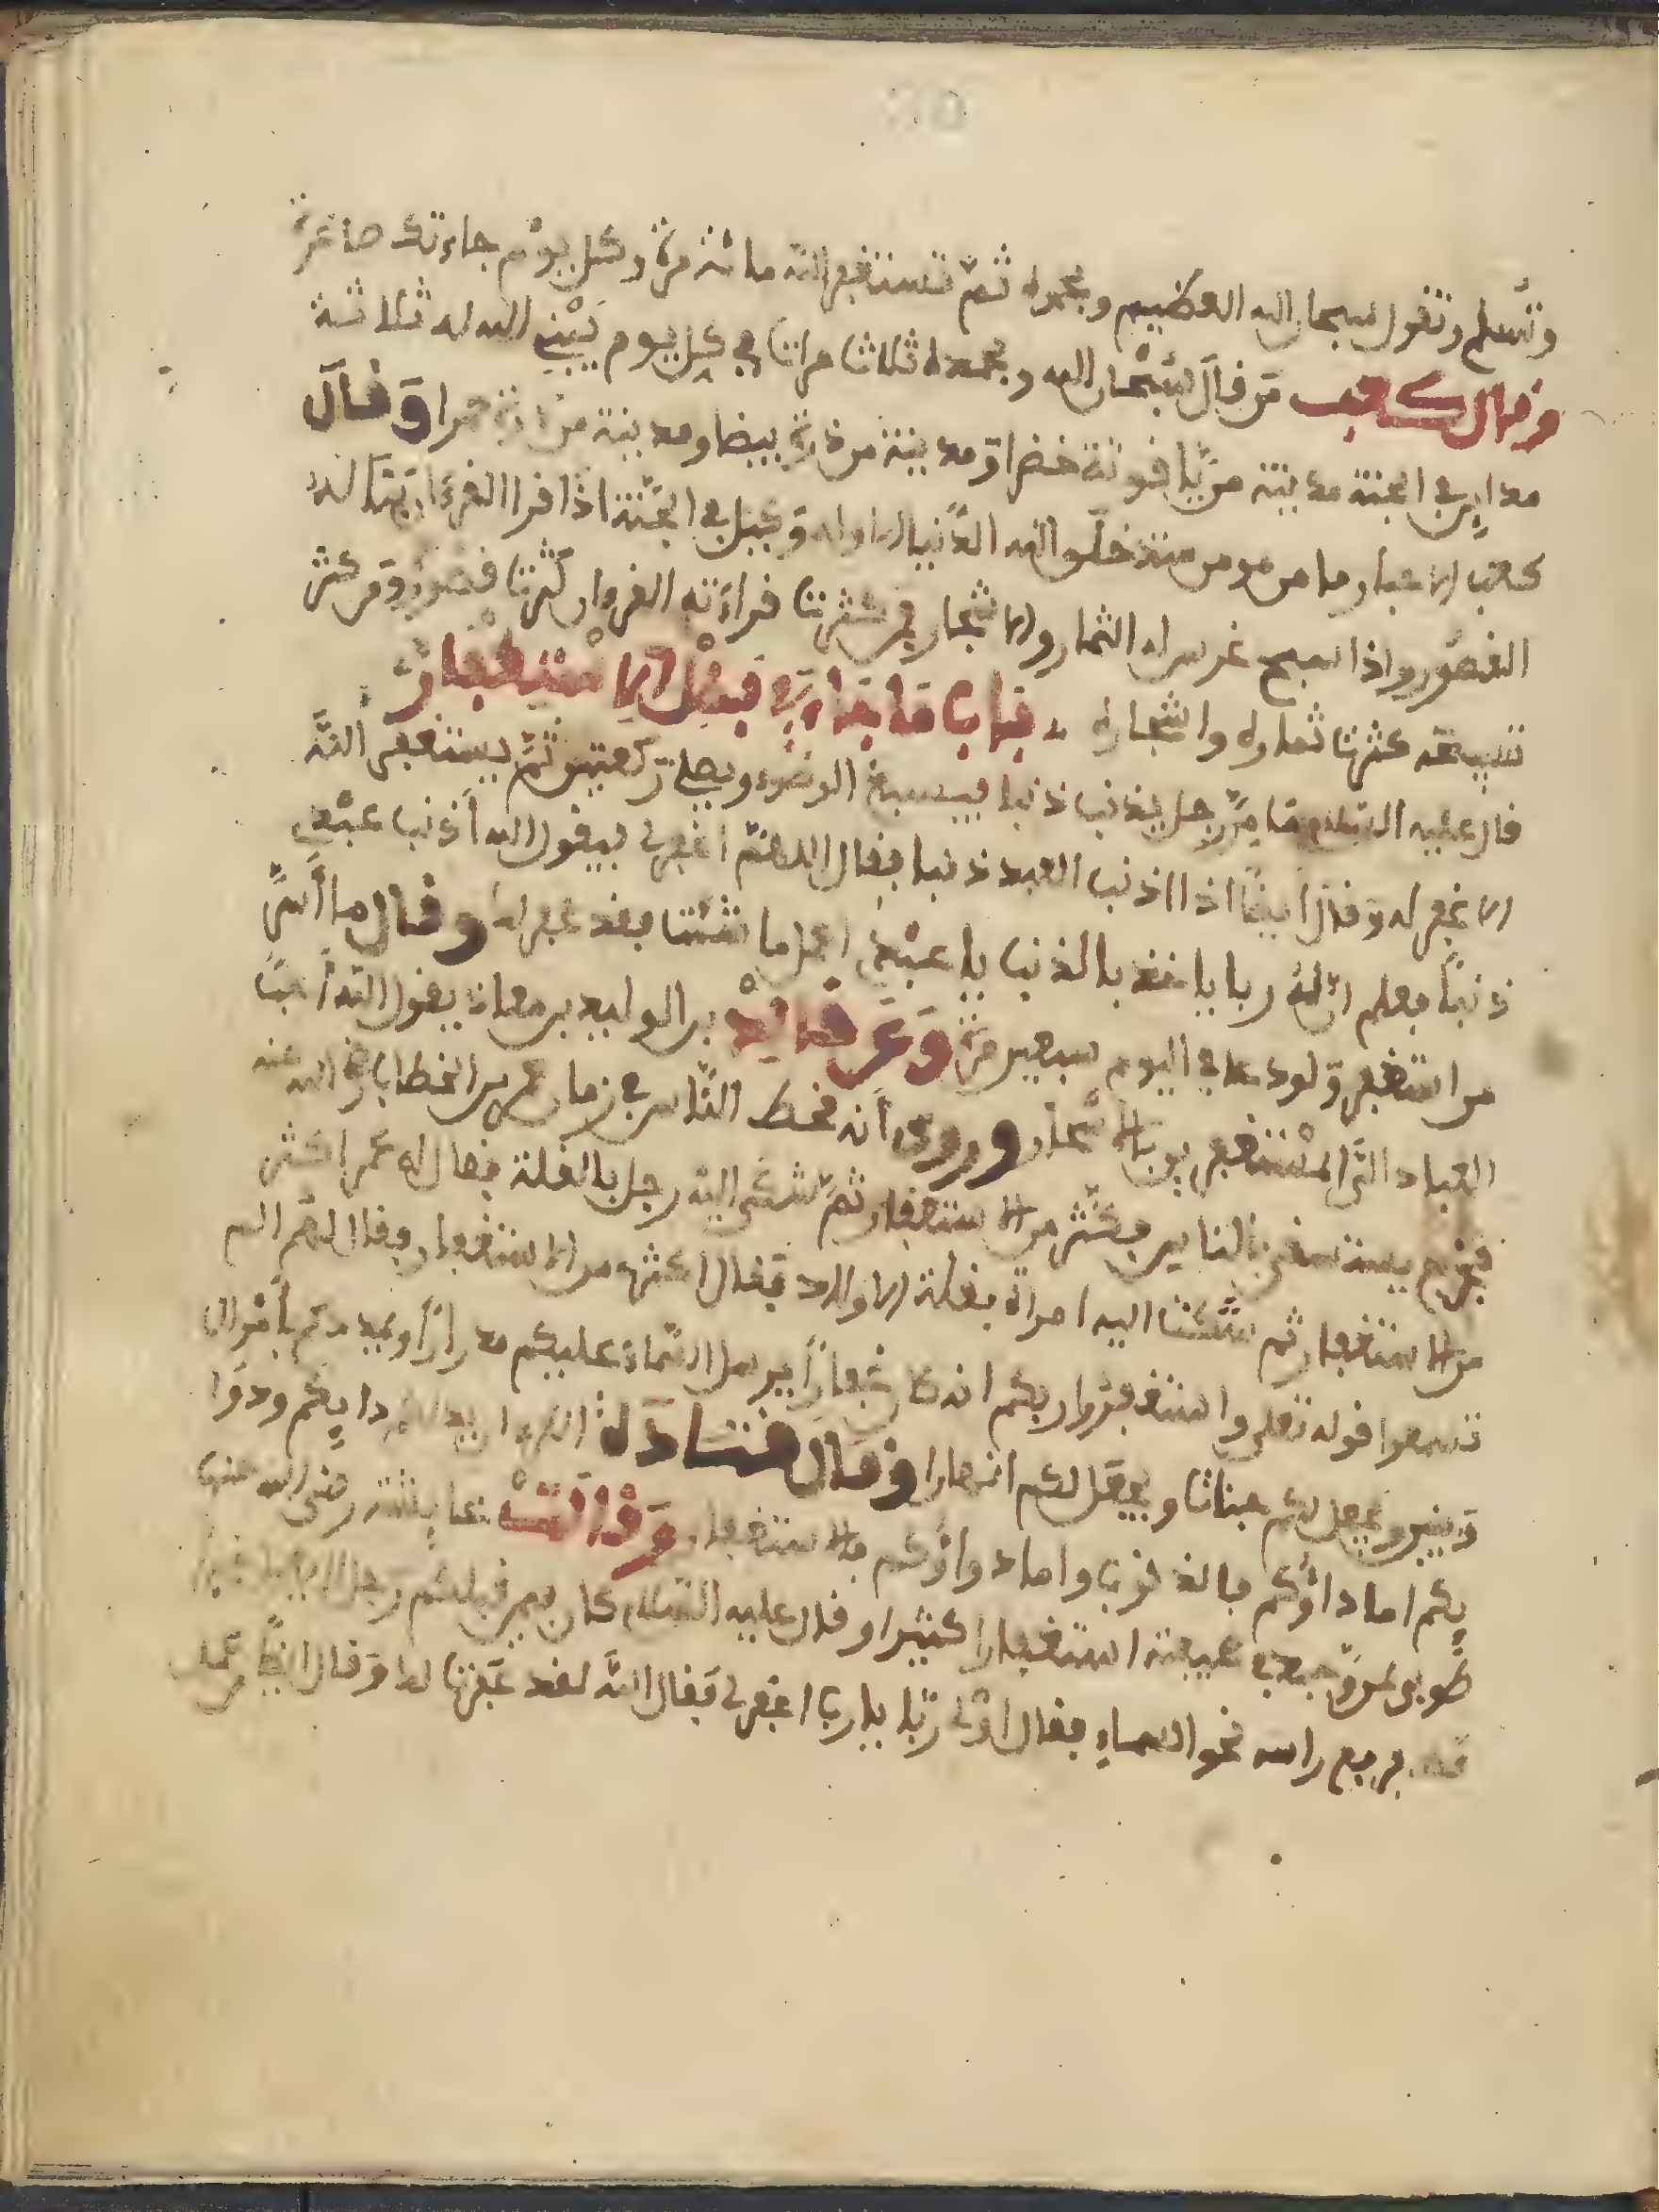 وتسلم وتقول سبحان الله العظيم وبحمده ثم تستغفر الله مائة مرة في كل يوم جاءتك صاغرة
وقال كعب من قال سبحان الله وبحمده ثلاثا مرات في كل يوم يبني الله له ثلاثة
مداين في الجنة مدينة من ياقوتة خضرا ومدينة من درة بيضا ومدينة من درة حمرا وقال
كعب الاحبار ما من مومن منذ خلق الله الدنيا الا وله وكيل في الجنة اذا قرا القرءان بنا له
القصور واذا سبح غرس له الثمار والاشجار فمن كثرت قراءته القرءان كثرت قصوره ومن كثر
تسبيحه كثرت ثماره واشجاره باب ما جاء في فضل الاستغفار
قال عليه السلام ما من رجل يذنب ذنبا فيسبغ الوضوء ويصلي ركعتين ثم يستغفر الله
الا غفر له وقال ايضا اذا اذنب العبد ذنبا فقال اللهم اغفر لي فيقول الله أذنب عبدي
ذنبا فعلم ان له ربا ياخذ بالذنب يا عبدي اعمل ما شئت فقد غفر لك وقال ما أصر
من استغفر ولو عاد في اليوم سبعين مرة وعن خالد بن الوليد بن معدان يقول الله أحب
العباد الي المستغفرين بالاسحار وروي انه قحط الناس في زمان عمر بن الخطاب رضي الله عنه
فخرج يستسقي بالناس فكثر من الاستغفار ثم شكى اليه رجل بالقلة فقال له عمر اكثر
من الاستغفار ثم شكت اليه امراة بقلة الاولاد فقال اكثر من الاستغفار وقال لهم الم
تسمعوا قوله تعلى واستغفروا ربكم انه كان غفارا يرسل السماء عليكم مدرارا ويمددكم باموال
وبنين ويجعل لكم جنات ويجعل لكم انهارا وقال قتادة القرءان يدلكم دايكم ودوا
يكم اما داؤكم فالذنوب واما دواؤكم فالاستغفار وقالت عايشة رضي الله عنها
طوبى لمن وجد في صحيفته استغفارا كثيرا وقال عليه السلام كان فيمن قبلكم رجل
قط فرفع راسه نحو السماء فقال ان لي ربا يا رب اغفر لي فقال الله لقد غفرت لك وقال ايضا من